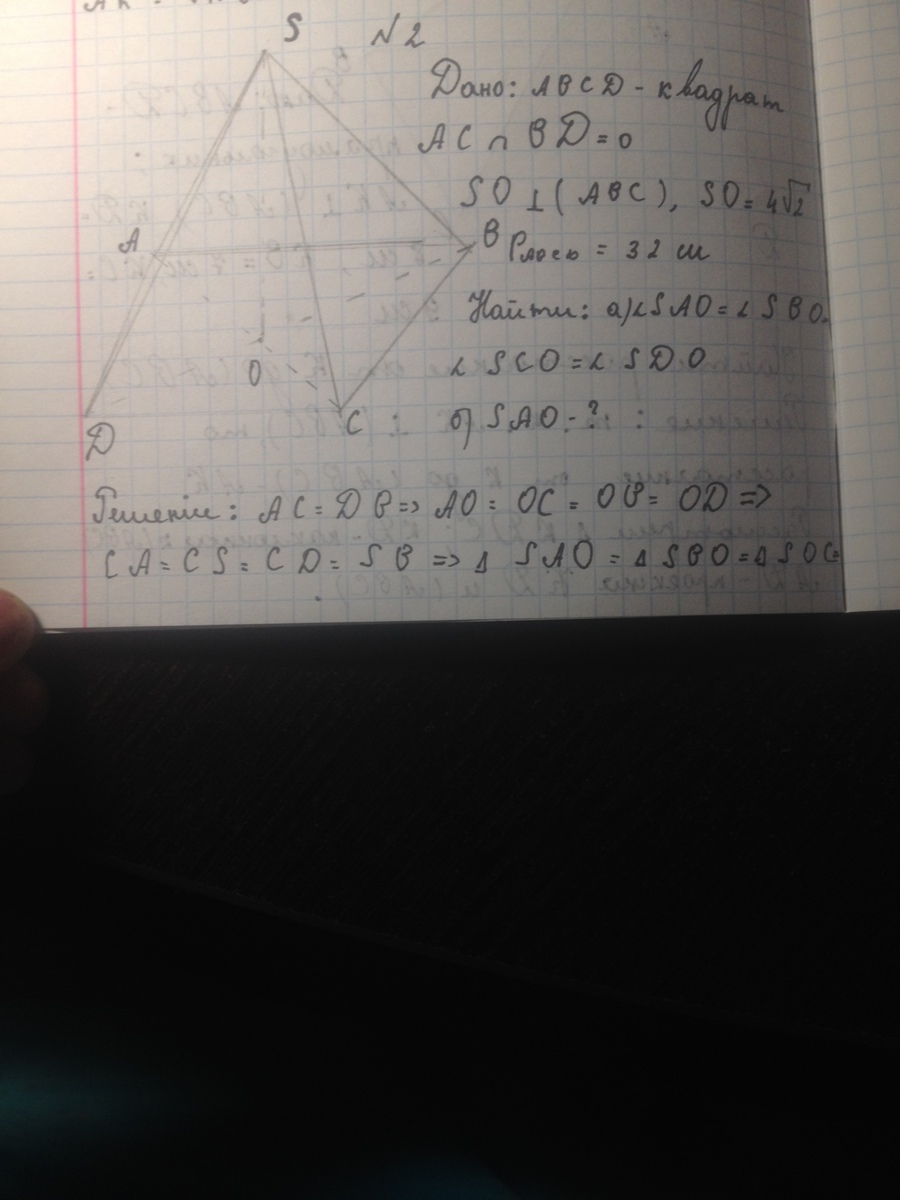 S N2
Дано: ABCD - квадрат
AC ∩ BD = O
SO ⊥ (ABC), SO = 4√2
A B
= 32 см
Найти: а) ∠SAO = ∠SBO =
∠SCO = ∠SDO
O
D C б) SAO - ?
Решение: AC = DB => AO = OC = OB = OD =>
CA = CS = CD = SB => Δ SAO = Δ SBO = Δ SOC =